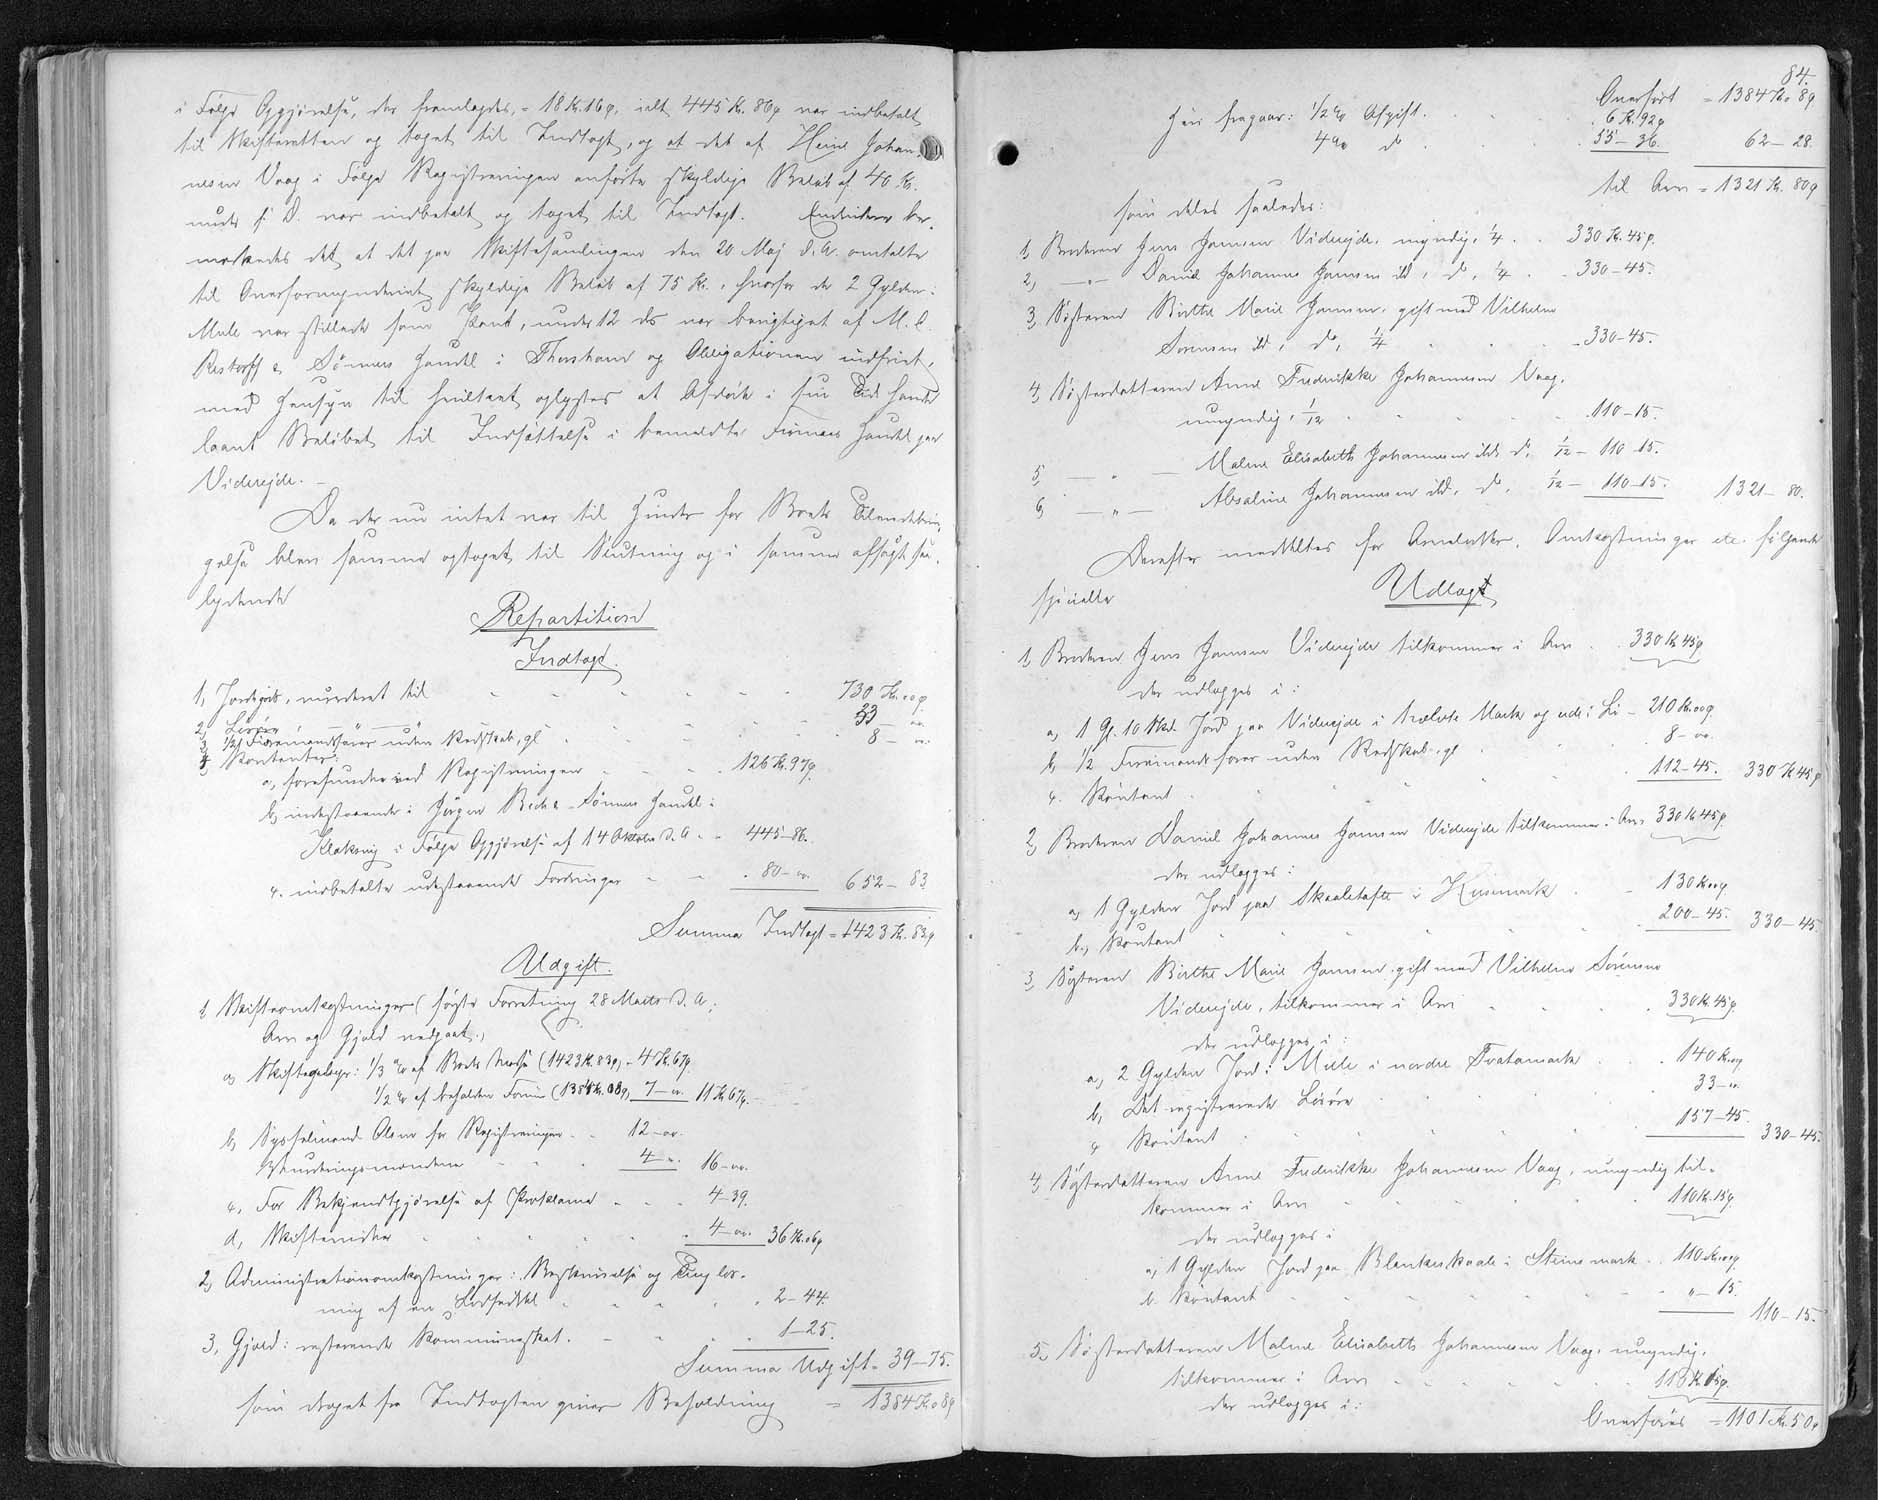 i Følge Opgjørelse, der fremlagdes, = 18 Kr. 16 ø, ialt 445 Kr. 86 ø var indbetalt
til Skifteretten og taget til Indtægt, og at det af Heine Johan-
nesen Vaag i Følge Registreringen anførte skyldige Beløb af 40 Kr.
under s. D. var indbetalt og taget til Indtægt. Endvidere be-
mærkedes det, at det paa Skiftesamlingen den 20 Maj d. A. omtalte
til Overformynderiet skyldige Beløb af 75 Kr., hvorfor de 2 Gylden i
Mule var stillede som Pant, under 12 ds var berigtiget af M. C.
Restorff & Sønners Handel i Thorshavn og Obligationen indfriet,
med Hensyn til hvilket oplystes at Afdøde i sin Tid havde
laant Beløbet til Indsættelse i bemeldte Firmaes Handel paa
Viderejde. –
Da der nu intet var til Hinder for Boets Tilendebrin-
gelse blev samme optaget til Slutning og i samme afsagt saa-
lydende
Repartition
Indtægt.
1, Jordegods, vurderet til 730 Kr. oo ø.
2, Løsøre —"— 33 – oo.
3, 1/2 Firemandsfarer uden Redskab, gl. 8 – oo.
4, Kontanter:
a, forefundne ved Registreringen 126 Kr. 97 ø.
b, indestaaende i Jørgen Bech & Sønners Handel i
Klaksvig i Følge Opgjørelse af 14 Oktober d. A. 445 – 86.
c. indbetalte udestaaende Fordringer 80 – oo. 652 – 83.
Summa Indtægt = 1423 Kr. 83 ø
Udgift.
1, Skifteomkostninger (søgte Forretning 28 Marts d. A.;
Arv og Gjæld vedgaaet.)
a, Skiftegebyr: 1/3 % af Boets Masse (1423 Kr. 83 ø) = 4 Kr. 67 ø.
1/2 % af beholden Formue (1384 Kr. 08 ø) 7 – oo. 11 Kr. 67 ø.
b, Sysselmand Olsen for Registreringen 12 – oo.
Vurderingsmændene 4 – ". 16 – oo.
c, For Bekjendtgjørelse af Proklama 4 – 39.
d, Skiftevidner 4 – oo. 36 Kr. 06 ø
2, Administrationsomkostninger: Beskrivelse og Tinglæs-
ning af en Lodseddel 2 – 44.
3, Gjæld: resterende Kommuneskat. 1 – 25.
Summa Udgift = 39 – 75.
som draget fra Indtægten giver Beholdning = 1384 Kr. 08 ø
84.
Overført = 1384 Kr. 08 ø
Heri fragaar: 1/2 % Afgift. 6 Kr. 92 ø
4 % do 55 – 36. 62 – 28.
til Arv = 1321 Kr. 80 ø
som deles saaledes:
1, Broderen Jens Joensen Viderejde, myndig, 1/4 330 Kr. 45 ø.
2, —"— Daniel Johannes Joensen ibd, do, 1/4 330 – 45.
3, Søsteren Birthe Marie Joensen, gift med Vilhelm
Sørensen ibd, do, 1/4 330 – 45.
4, Søsterdatteren Anne Fredrikke Johannesen Vaag,
umyndig, 1/12 110 – 15.
5, — " — Malene Elisabeth Johannesen ibd, do, 1/12 – 110 – 15.
6, — " — Absaline Johannesen ibd, do, 1/12 – 110 – 15. 1321 – 80.
Derefter meddeltes for Arvelodder, Omkostninger etc. følgende
specielle Udlæg
1, Broderen Jens Joensen Viderejde tilkommer i Arv 330 Kr 45 ø
der udlægges i:
a, 1 Gl. 10 Skd. Jord paa Viderejde i trælvte Mark og ude i Li – 210 Kr. oo ø.
b, 1/2 Firemandsfarer uden Redskab, gl. 8 – oo.
c. Kontant 112 – 45. 330 Kr 45 ø
2, Broderen Daniel Johannes Joensen Viderejde tilkommer i Arv 330 Kr 45 ø.
der udlægges i:
a, 1 Gylden Jord paa Skaaletofte i Husemark 130 Kr oo ø.
b, Kontant 200 – 45. 330 – 45.
3, Søsteren Birthe Marie Joensen, gift med Vilhelm Sørensen
Viderejde, tilkommer i Arv 330 Kr. 45 ø.
der udlægges i:
a, 2 Gylden Jord i Mule i nordre Tvatamark 140 Kr. oo ø
b, Det registrerede Løsøre 33 – oo.
c Kontant 157 – 45. 330 – 45.
4, Søsterdatteren Anne Fredrikke Johannesen Vaag, umyndig til-
kommer i Arv 110 Kr. 15 ø.
der udlægges i
a, 1 Gylden Jord paa Blankeskaale i Steinsmark 110 Kr. oo ø
b. Kontant " – 15. 110 – 15.
5, Søsterdatteren Malene Elisabeth Johannesen Vaag, umyndig,
tilkommer i Arv 110 Kr 15 ø.
der udlægges i:
Overføres = 1101 Kr. 50 ø